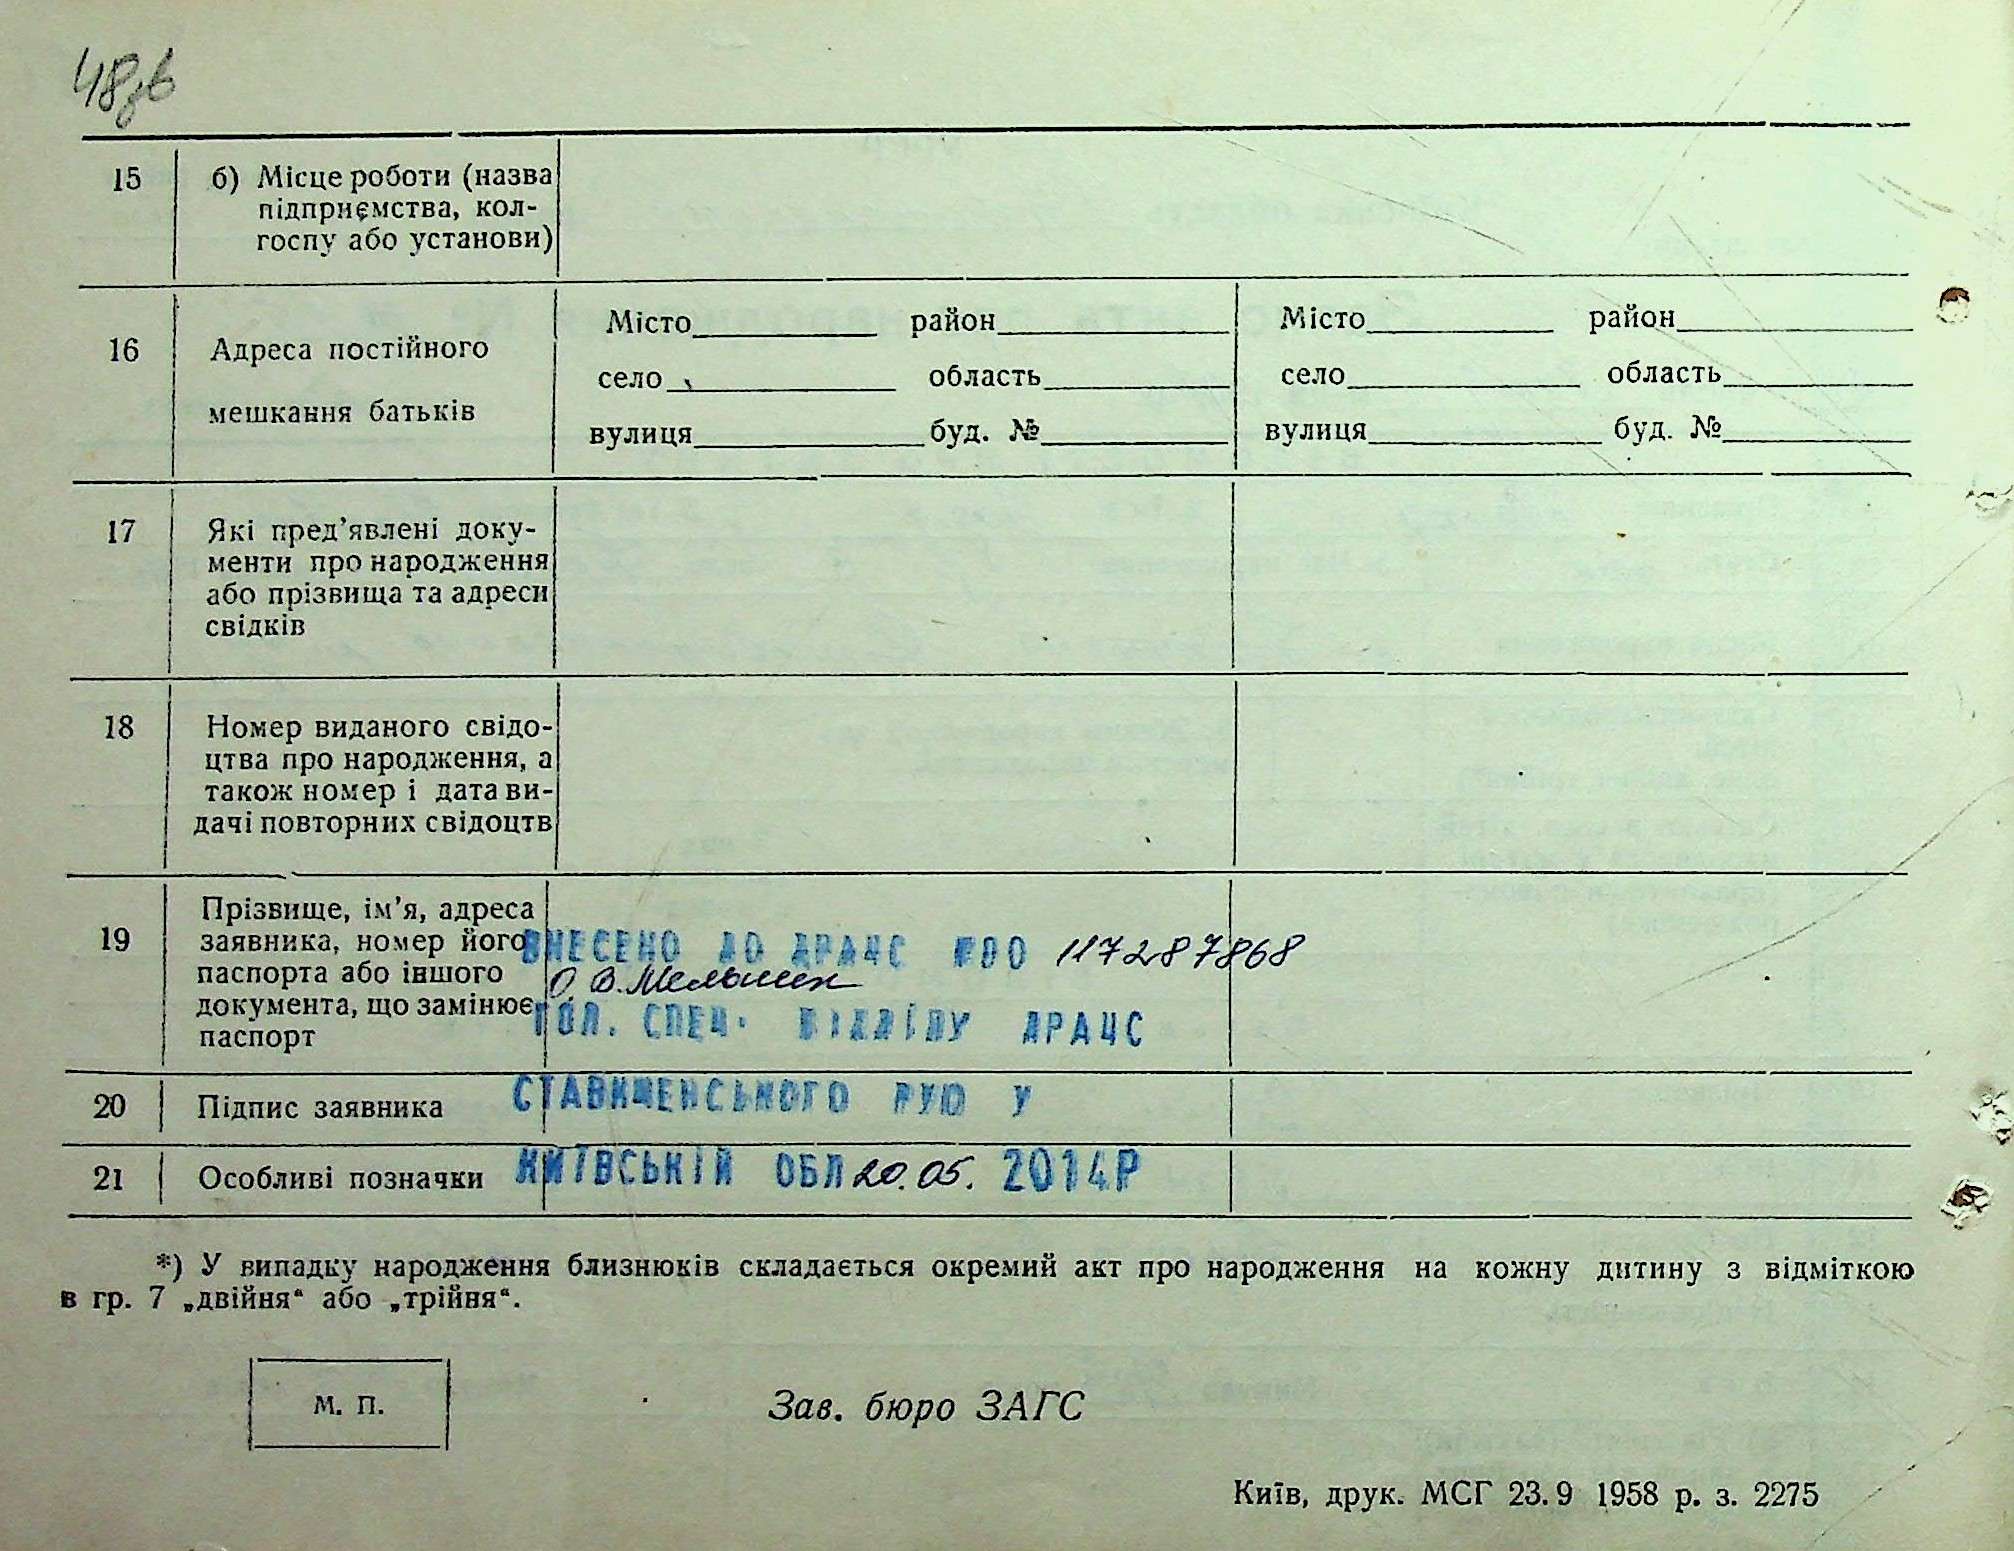 48зв
15 б) Місце роботи (назва
підприємства, кол-
госпу або установи)
16 Адреса постійного
мешкання батьків
Місто район Місто район
село область село область
вулиця буд. № вулиця буд. №
17 Які пред’явлені доку-
менти про народження
або прізвища та адреси
свідків
18 Номер виданого свідо-
цтва про народження, а
також номер і дата ви-
дачі повторних свідоцтв
19 Прізвище, ім’я, адреса
заявника, номер його
паспорта або іншого
документа, що замінює
паспорт
ВНЕСЕНО ДО ДРАЦС №00 117287868
О В. Мельник
ГОЛ. СПЕЦ. ВІДДІЛУ ДРАЦС
20 Підпис заявника
СТАВИЩЕНСЬКОГО РУЮ У
21 Особливі позначки
КИЇВСЬКІЙ ОБЛ 20.05. 2014Р
*) У випадку народження близнюків складається окремий акт про народження на кожну дитину з відміткою
в гр. 7 „двійня“ або „трійня“.
М. П.
Зав. бюро ЗАГС
Київ, друк. МСГ 23.9 1958 р. з. 2275